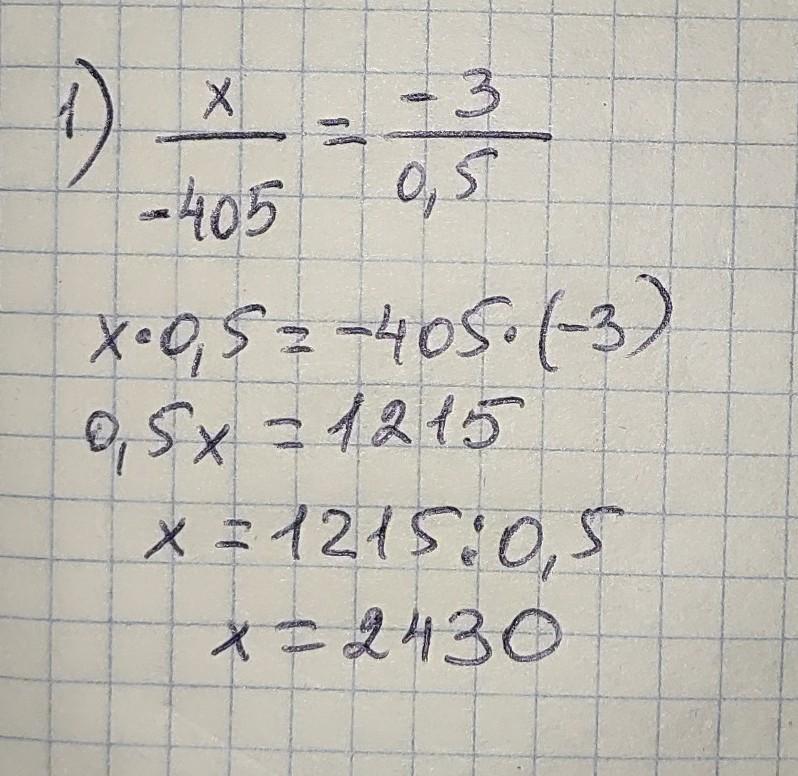 1) x/-405 = -3/0,5
x·0,5=-405·(-3)
0,5x=1215
x=1215:0,5
x=2430